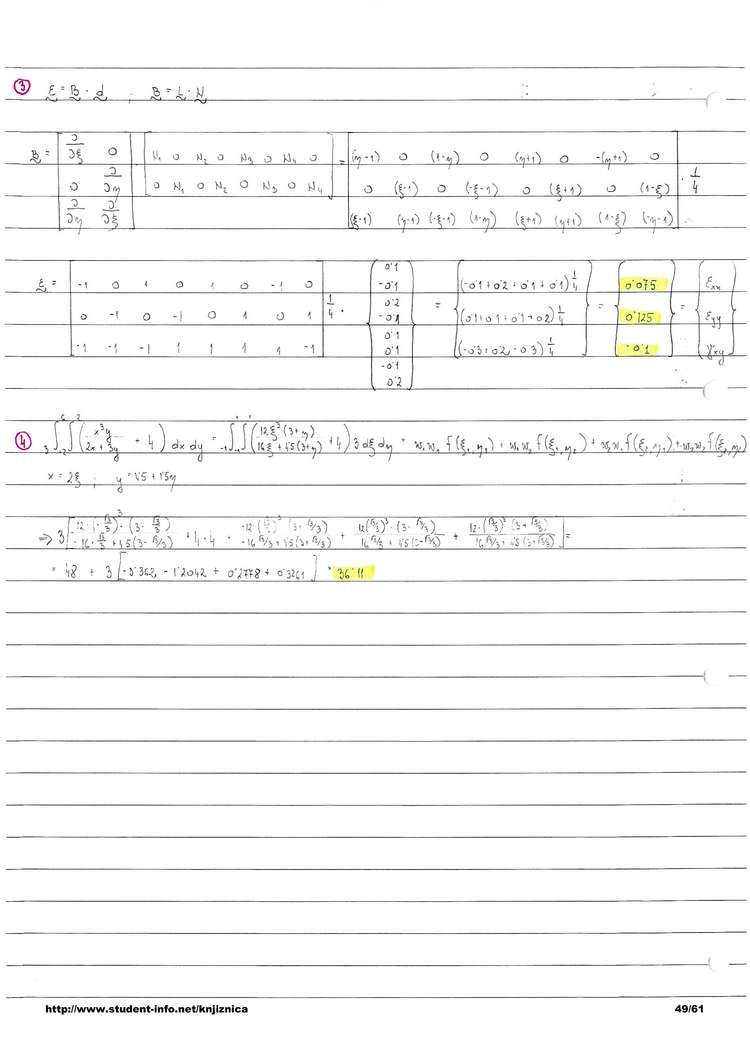 ③ ε = B · d ; B = L · N
B = [∂/∂ξ 0 ; 0 ∂/∂η ; ∂/∂η ∂/∂ξ] · [N₁ 0 N₂ 0 N₃ 0 N₄ 0 ; 0 N₁ 0 N₂ 0 N₃ 0 N₄] = [(η-1) 0 (1-η) 0 (η+1) 0 -(η+1) 0 ; 0 (ξ-1) 0 (-ξ-1) 0 (ξ+1) 0 (1-ξ) ; (ξ-1) (η-1) (-ξ-1) (1-η) (ξ+1) (η+1) (1-ξ) (-η-1)] · 1/4
ε = [-1 0 1 0 1 0 -1 0 ; 0 -1 0 -1 0 1 0 1 ; -1 -1 -1 1 1 1 1 -1] 1/4 · {0.1 ; -0.1 ; 0.2 ; -0.1 ; 0.1 ; 0.1 ; -0.1 ; 0.2} = {(-0.1+0.2+0.1+0.1) 1/4 ; (0.1+0.1+0.1+0.2) 1/4 ; (-0.3+0.2-0.3) 1/4} = {0.075 ; 0.125 ; -0.1} = {εxx ; εyy ; γxy}
④ ₃∫⁶ ₋₂∫² (x³y/(2x+3y) + 4) dx dy = ₋₁∫¹ ₋₁∫¹ (12ξ³(3+η)/(16ξ+4.5(3+η)) + 4) 3 dξ dη = w₁w₁ f(ξ₁,η₁) + w₁w₂ f(ξ₁,η₂) + w₂w₁ f(ξ₂,η₁) + w₂w₂ f(ξ₂,η₂)
x = 2ξ ; y = 4.5 + 1.5η
⇒ 3[12·(-√3/3)³·(3-√3/3)/(-16·√3/3+4.5(3-√3/3)) + 4·4 + -12(√3/3)³(3+√3/3)/(-16√3/3+4.5(3+√3/3)) + 12(√3/3)³·(3-√3/3)/(16√3/3+4.5(3-√3/3)) + 12·(√3/3)³(3+√3/3)/(16√3/3+4.5(3+√3/3))] =
= 48 + 3[-3.362 - 1.2042 + 0.2778 + 0.3261] = 36.11
http://www.student-info.net/knjiznica 49/61